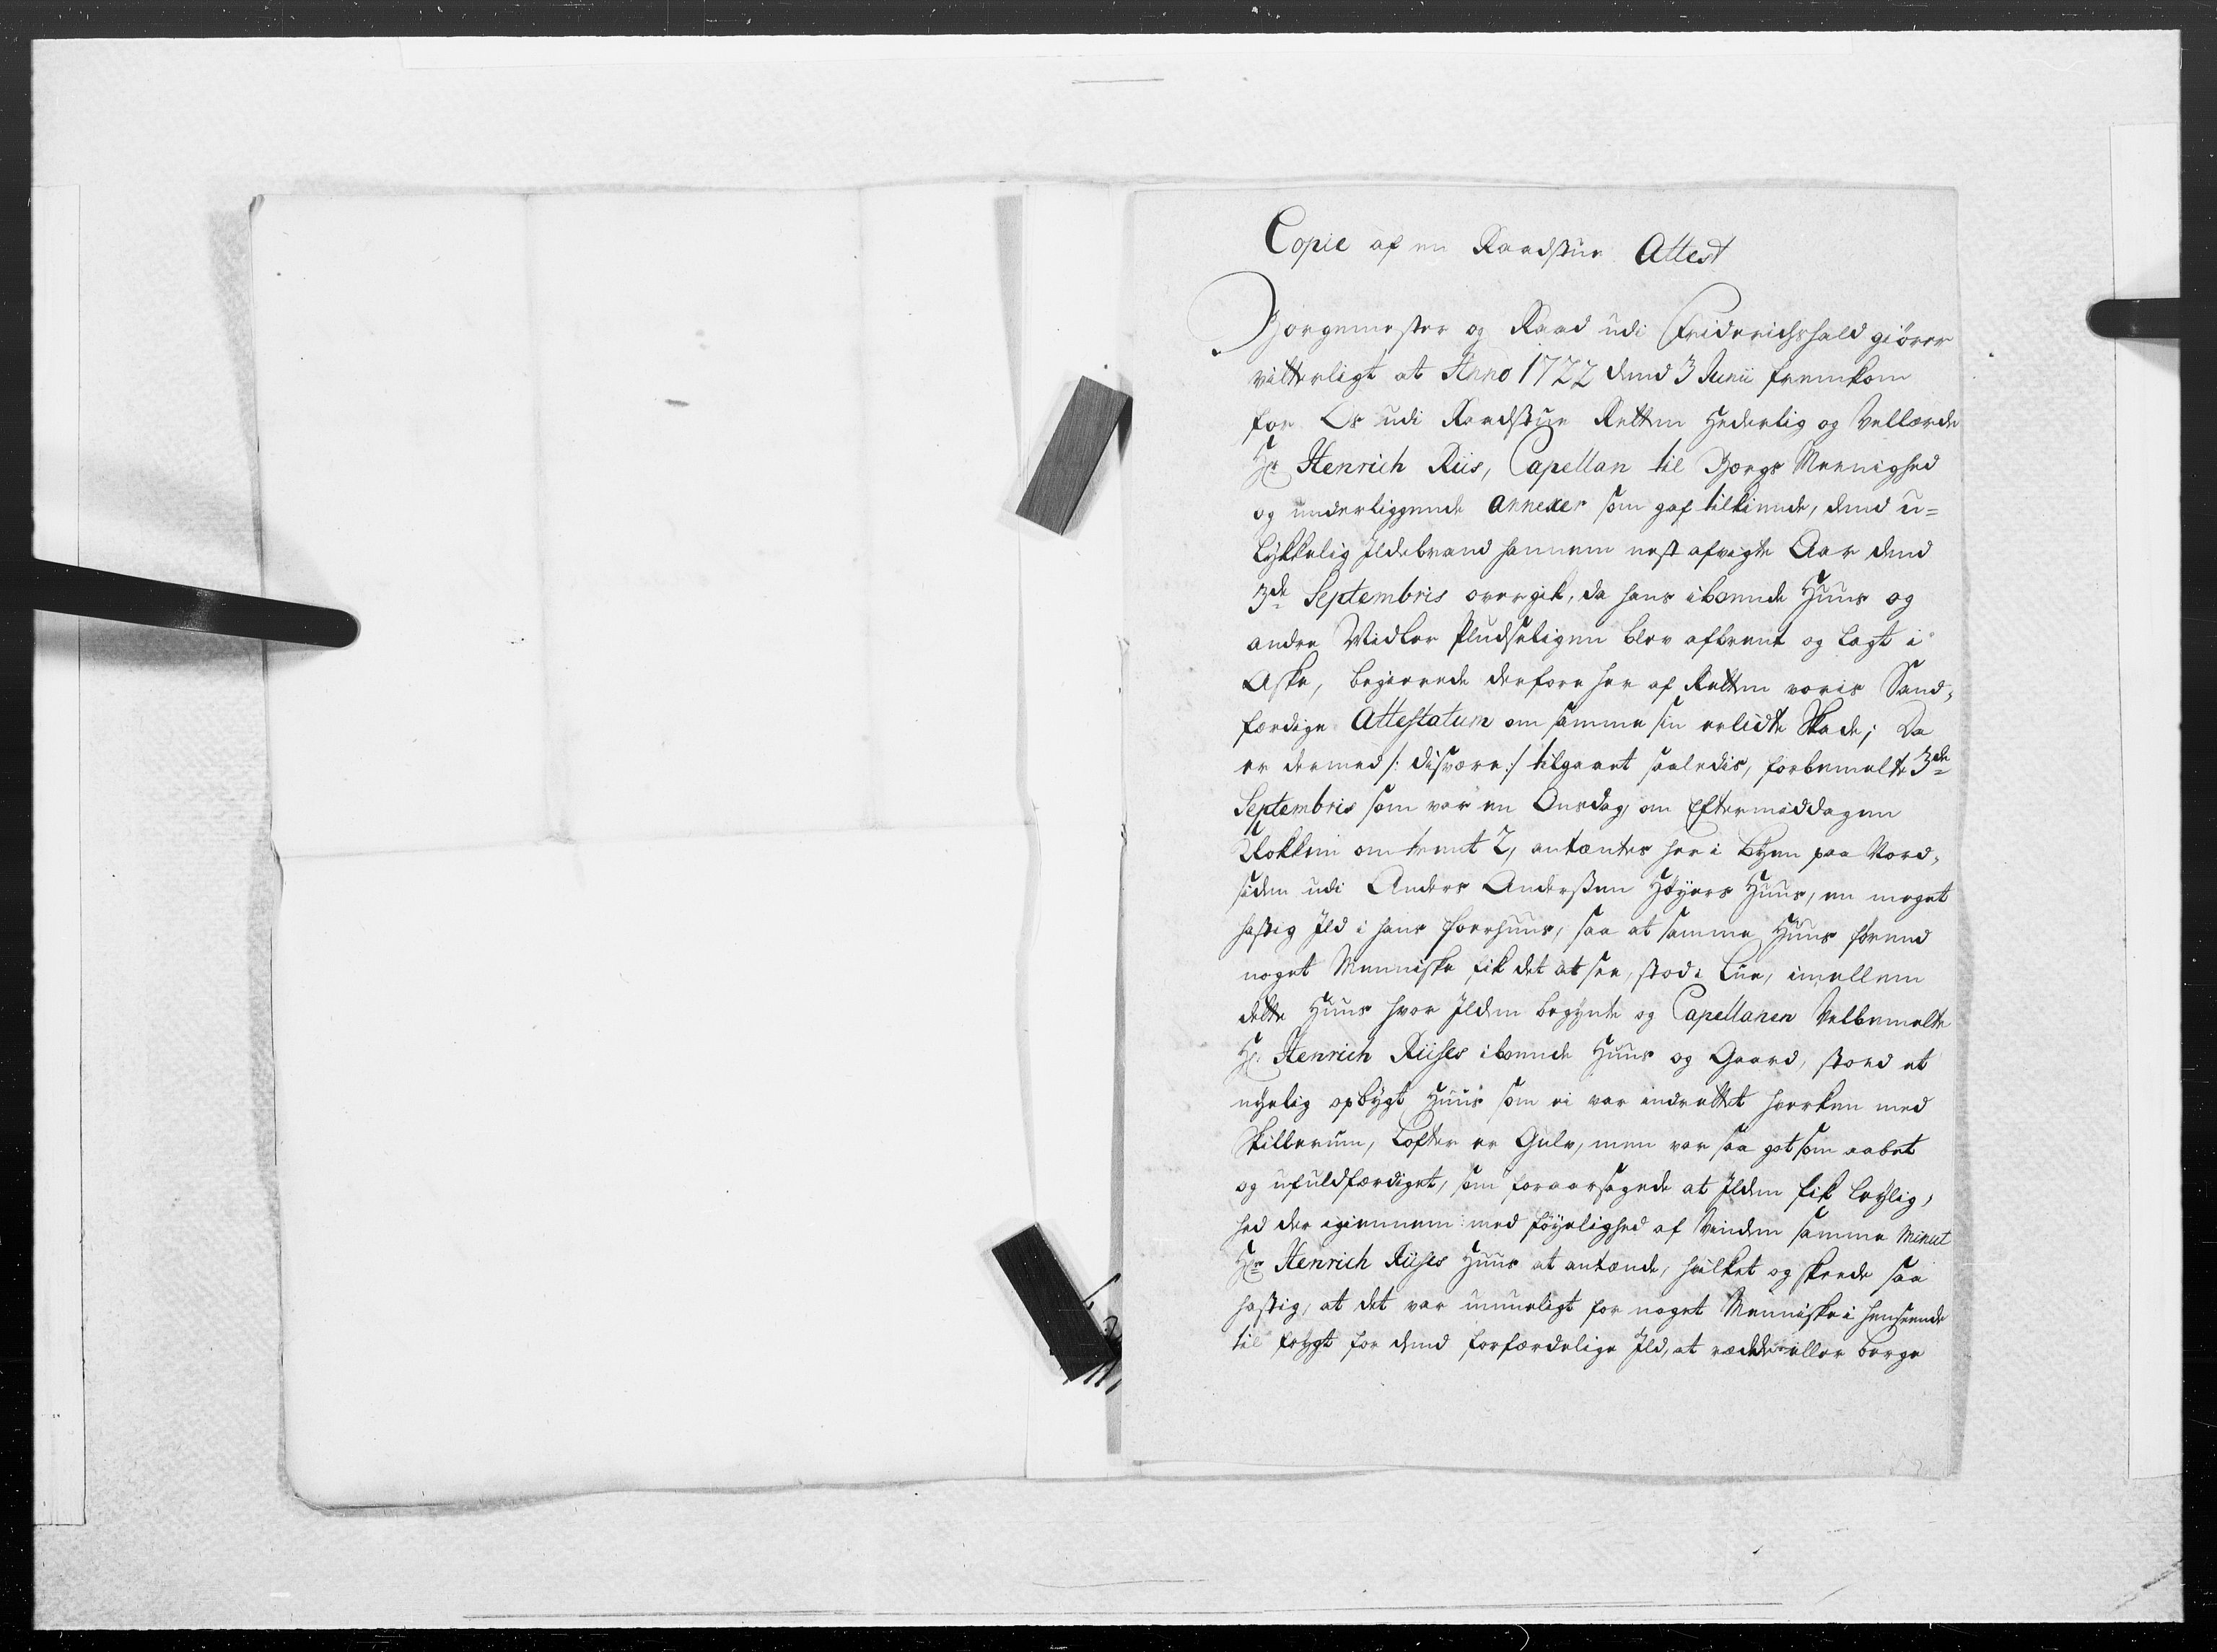 Copie af en Raadstue Attest
Borgemester og Raad udi Friderichshald giörer
vitterligt at Anno 1722 dend 3 Junii fremkom
for Os udi Raadstue Retten Hederlig og Vellærde
Hr Henrich Riis, Capellan til Borgs Meenighed
og underliggende annexer som gaf tilkiende, dend u=
lykkelig Ildebrand hannem nest afvigte Aar dend
3de Septembris overgik, da hans iboende Huus og
andre Midler pludseligen blev afbrent og lagt i
Aske, begierede derfore her af Retten voris Sand,
færdige Attestatum om samme sin erlidte Skade; Da
er dermed /: disvære :/ tilgaaet saaledis, forbemelte 3de
Septembris som var en Onsdag, om Eftermiddagen
Klokken omtrent 2, antæntes her i Byen paa Nord,
siden udi Anders Anderssen Høyers Huus, en meget
hastig Ild i hans forhuus, saa at samme Huus førend
noget Menniske fik det at see, stod i lue, imellem
dette Huus hvor Ilden begynte og Capellanen Velbemelte
Hr: Henrich Riises iboende Huus og Gaard, stoed et
nyelig opbygt Huus som ei var indrettet hverken med
Skillerum, Lofter er Gulv, men var saa got som aabet
og ufuldfærdiget, som foraarsagede at Ilden fik leylig,
hed der igiennem med føyelighed af Vinden samme Minut
Hr Henrich Riises Huus at antænde, hvilket og skeede saa
hastig, at det var umueligt for noget Menniske i henseende
til frygt for dend forfærdelige Ild, at rædde eller berge